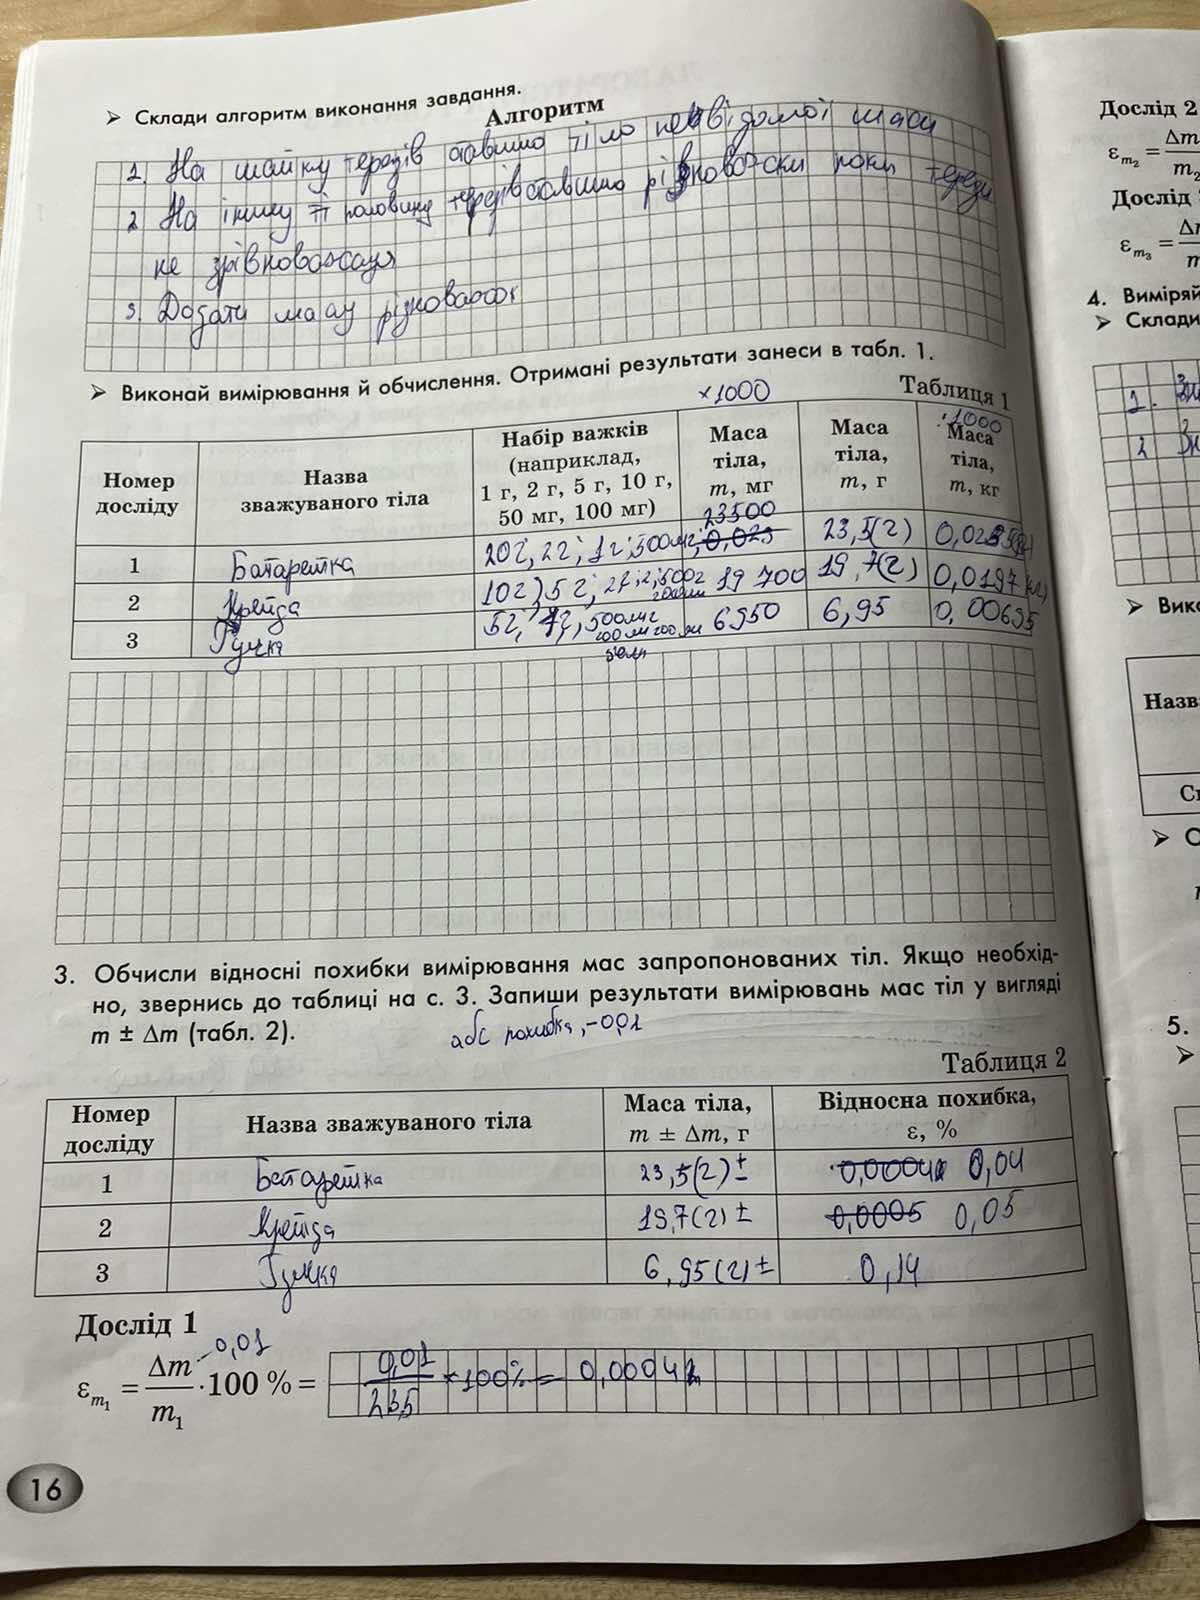 ➤ Склади алгоритм виконання завдання.
Алгоритм
1. На шальку терезів ставимо тіло невідомої маси
2. На іншу половину терезів ставимо різноважки поки терези
не зрівноважаться
3. Додати масу різноважок
➤ Виконай вимірювання й обчислення. Отримані результати занеси в табл. 1.
×1000
Таблиця 1
Номер досліду | Назва зважуваного тіла | Набір важків (наприклад, 1 г, 2 г, 5 г, 10 г, 50 мг, 100 мг) | Маса тіла, m, мг | Маса тіла, m, г | :1000 Маса тіла, m, кг
1 | Батарейка | 20г, 2г, 1г, 500мг, | 23500 0,023 | 23,5(г) | 0,0235
2 | Крейда | 10г, 5г, 2г, 2, 500г | 19 700 | 19,7(г) | 0,0197
3 | Ручка | 5г, 1г, 500мг | 6950 | 6,95 | 0,00695
3. Обчисли відносні похибки вимірювання мас запропонованих тіл. Якщо необхід-
но, звернись до таблиці на с. 3. Запиши результати вимірювань мас тіл у вигляді
m ± Δm (табл. 2).
абс похибка, – 0,01
Таблиця 2
Номер досліду | Назва зважуваного тіла | Маса тіла, m ± Δm, г | Відносна похибка, ε, %
1 | Батарейка | 23,5(г) ± | 0,00042 0,04
2 | Крейда | 19,7(г) ± | 0,0005 0,05
3 | Ручка | 6,95(г) ± | 0,14
Дослід 1
ε m₁ = Δm – 0,01 / m₁ · 100 % = 0,01 / 23,5 × 100% = 0,00042
16
Дослід 2
ε m₂ = Δm / m₂
Дослід
ε m₃ =
4. Виміряй
➤ Склади
1.
2
➤ Вико
Назв
➤ О
5.
➤